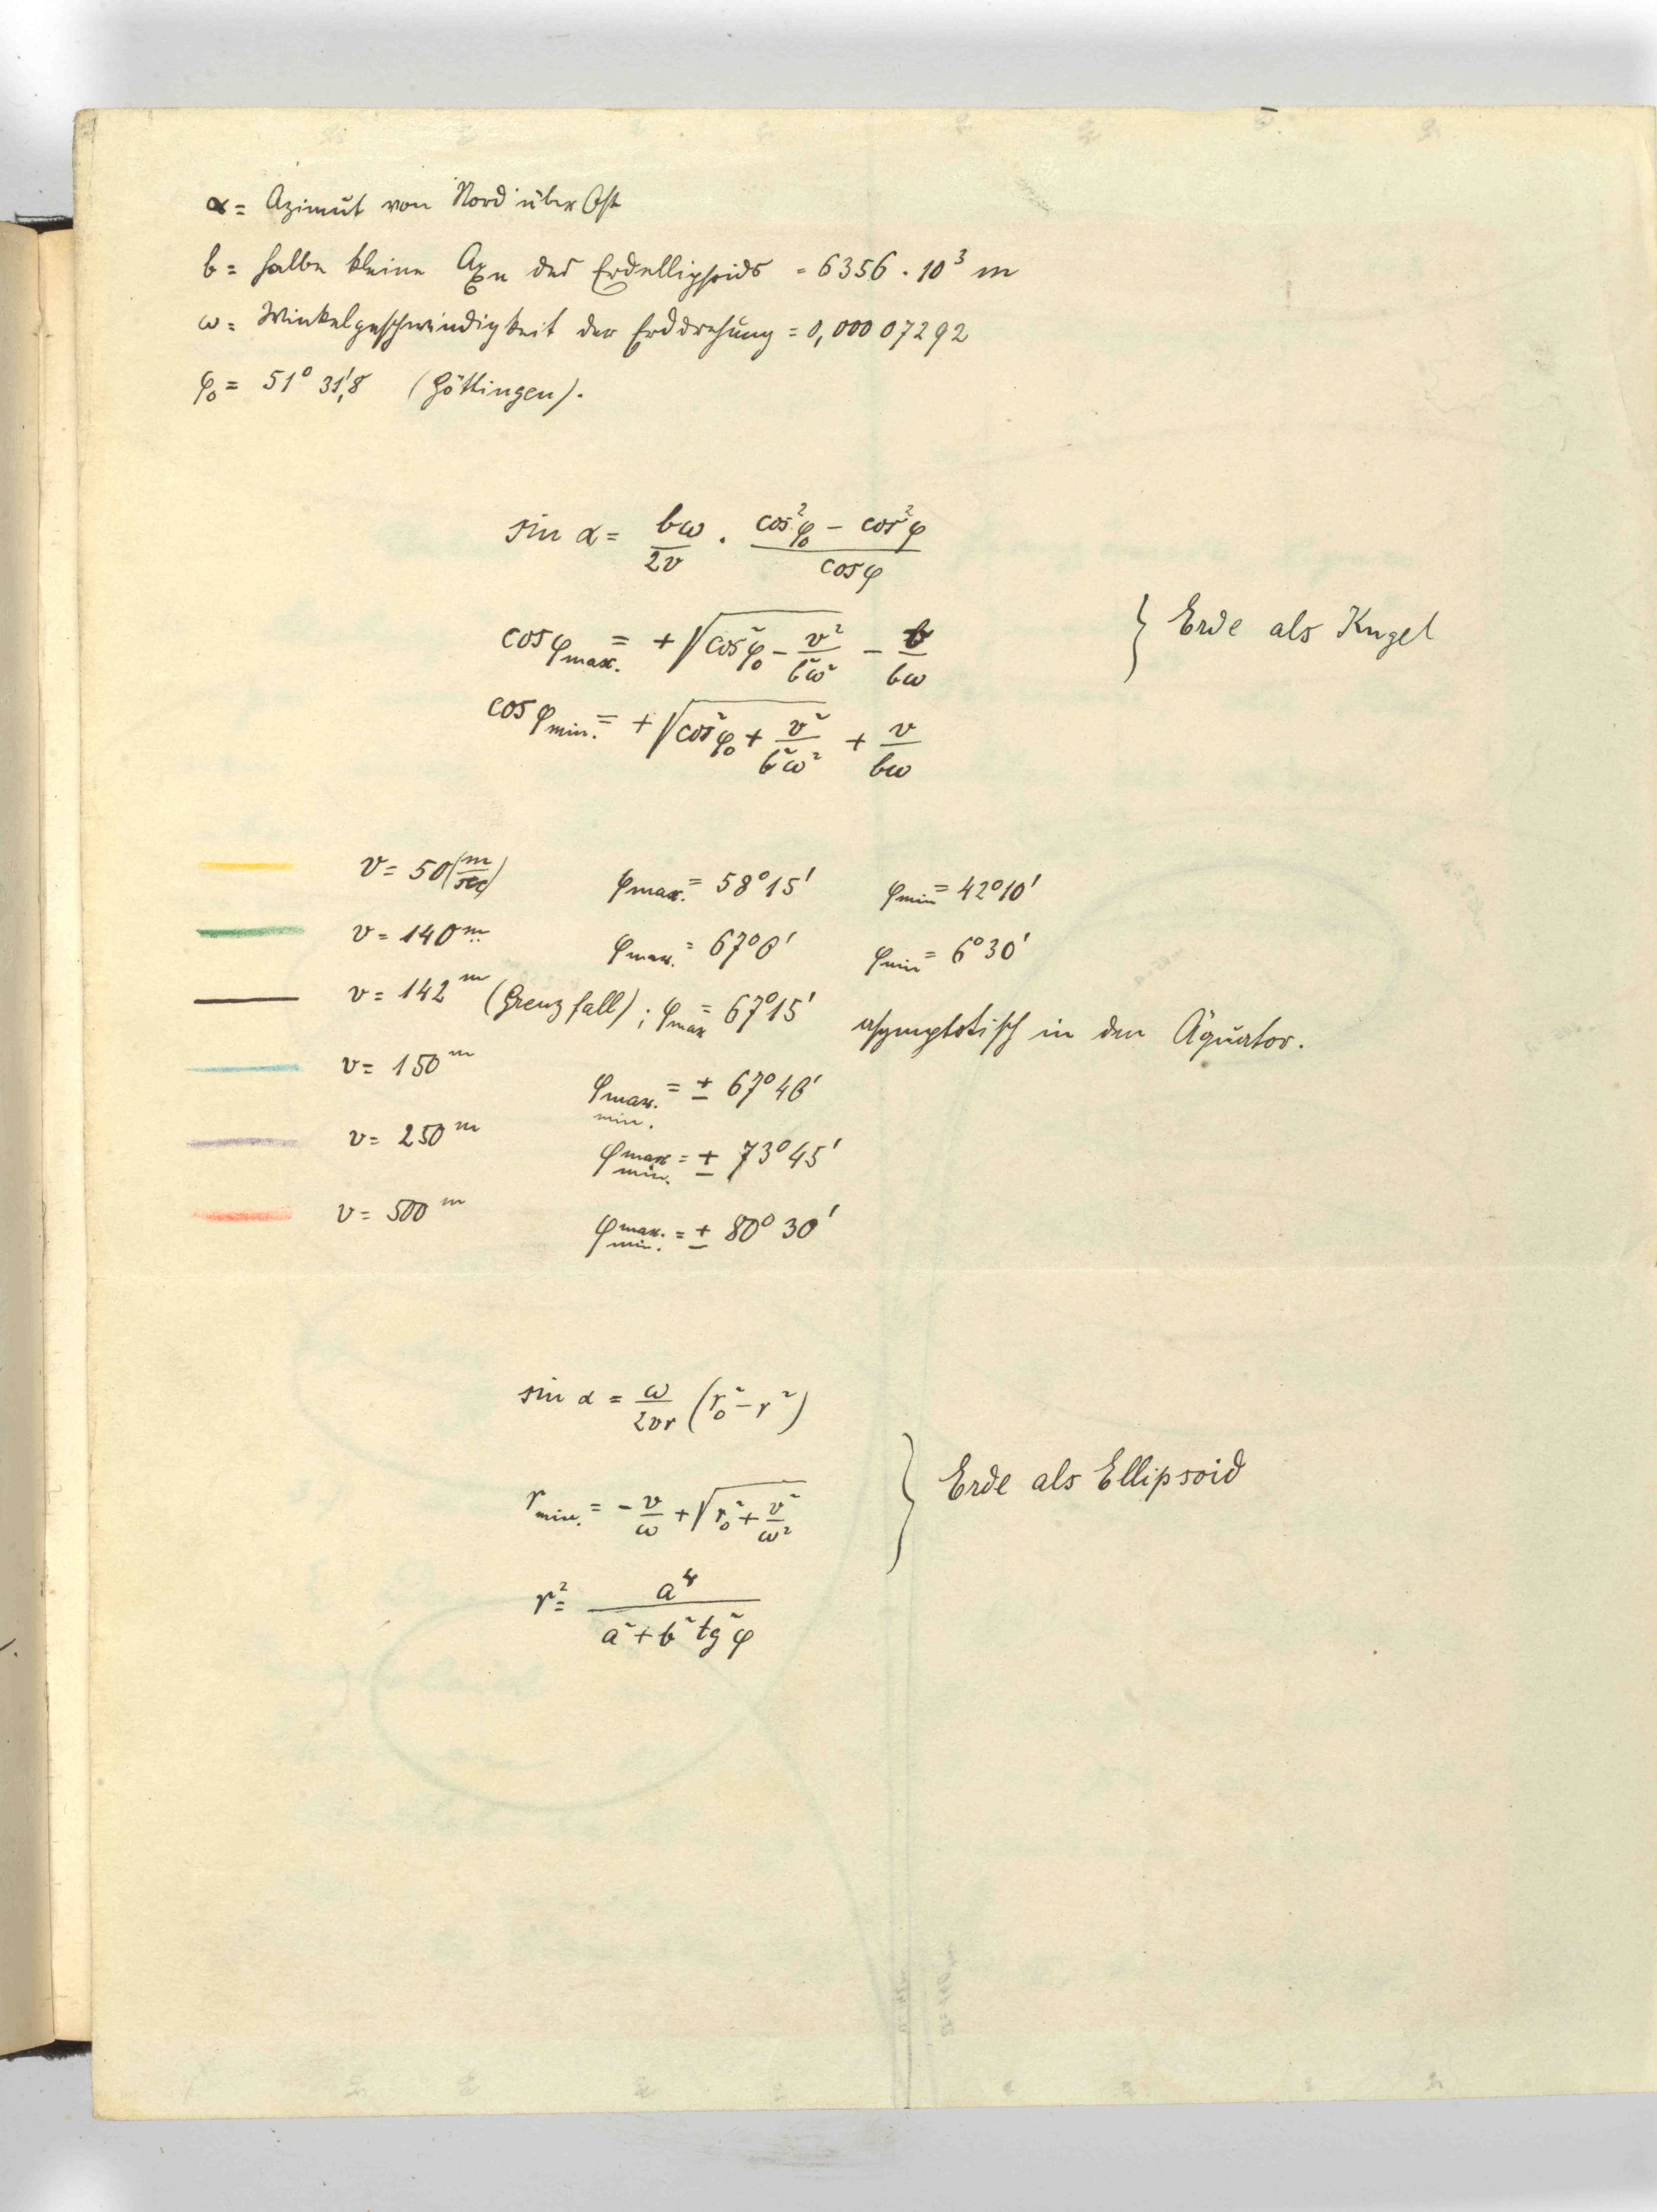 α = Azimut von Nord über Ost
b = halbe kleine Axe des Erdellipsoids = 6356 . 10³ m
ω = Winkelgeschwindigkeit der Erddrehung = 0,00007292
φ₀ = 51° 31,'8 (Göttingen).
sin α = bω/2v . (cos²φ₀ − cos²φ)/cosφ
cosφmax. = +√(cos²φ₀ − v²/b²ω²) − v/bω
Erde als Kugel
cosφmin. = +√(cos²φ₀ + v²/b²ω²) + v/bω
v = 50 (m/sec) φmax. = 58°15' φmin = 42°10'
v = 140 m φmax. = 67°0' φmin = 6°30'
v = 142 m (Grenzfall) ; φmax = 67°15' asymptotisch in den Äquator.
v = 150 m φmax. min. = ± 67°40'
v = 250 m φmax min. = ± 73°45'
v = 500 m φmax. min. = ± 80°30'
sin α = ω/2vr (r₀² − r²)
rmin. = −v/ω + √(r₀² + v²/ω²)
Erde als Ellipsoid
r² = a⁴/(a² + b² tg²φ)